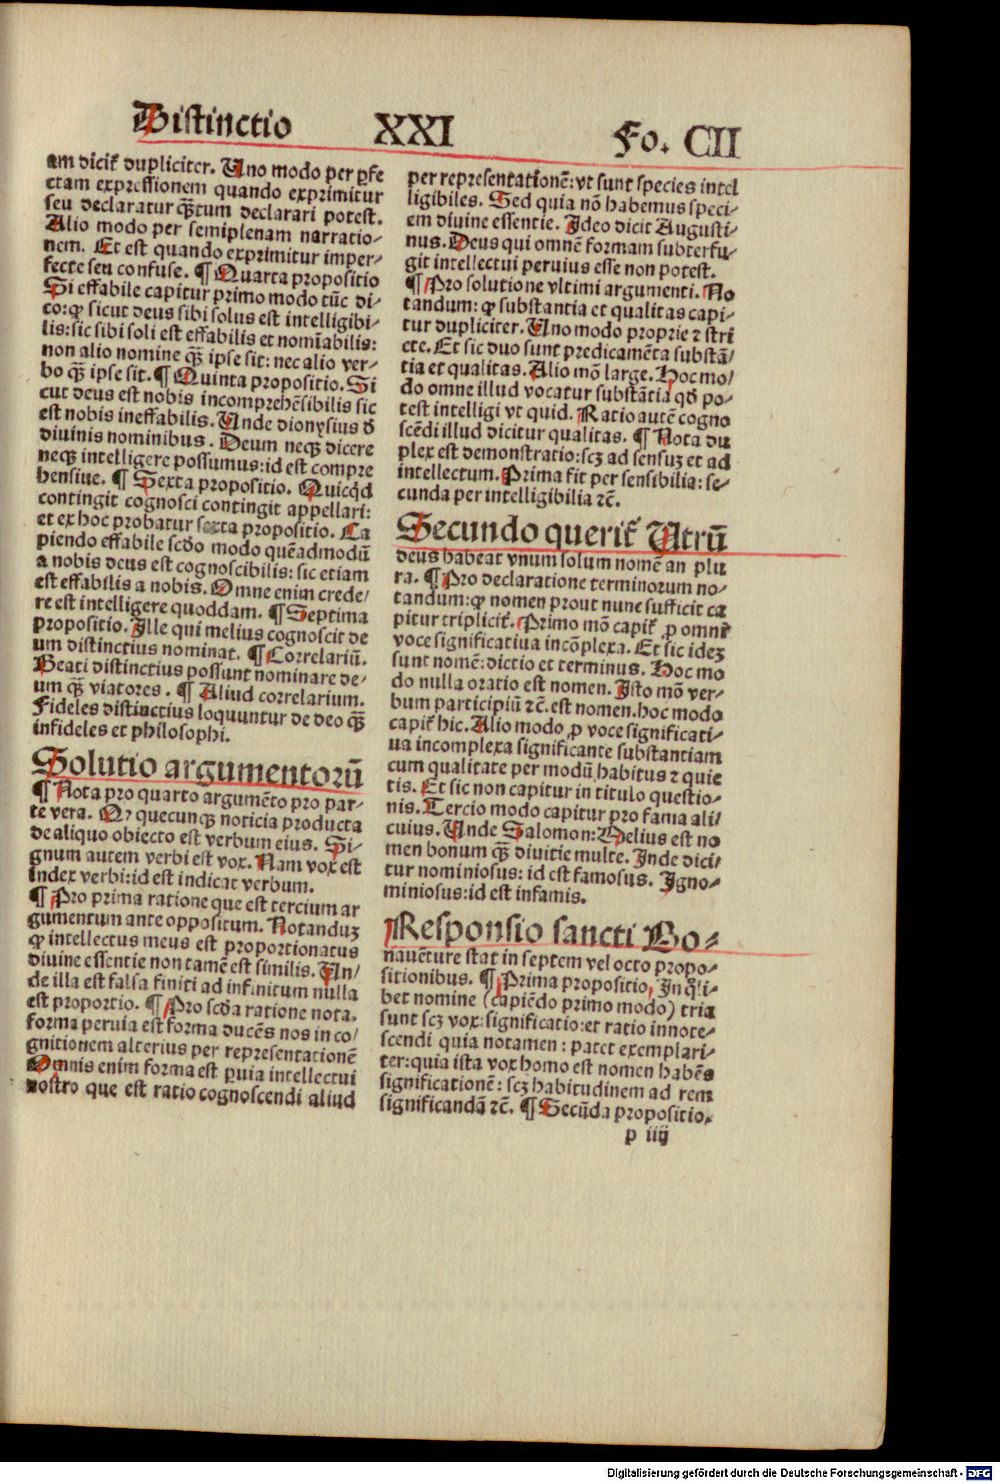 Distinctio XXI Fo. CII
am dicit᷑ dupliciter. Uno modo per ꝑfe
ctam expressionem quando exprimitur
seu declaratur quãtum declarari potest.
Alio modo per semiplenam narratio-
nem. Et est quando exprimitur imper-
fecte seu confuse. ¶ Quarta propositio
Si effabile capitur primo modo tũc di-
co: ꝙ sicut deus sibi solus est intelligibi-
lis: sic sibi soli est effabilis et nomĩabilis:
non alio nomine q̃ꝫ ipse sit: nec alio ver-
bo q̃ꝫ ipse sit. ¶ Quinta propositio. Si
cut deus est nobis incomprehẽsibilis sic
est nobis ineffabilis. Unde dionysius d̕
diuinis nominibus. Deum neqꝫ dicere
neqꝫ intelligere possumus: id est compre
hensiue. ¶ Sexta propositio. Quicq̇d
contingit cognosci contingit appellari:
et ex hoc probatur sexta propositio. Ca
piendo effabile scd̕o modo quẽadmodũ
a nobis deus est cognoscibilis: sic etiam
est effabilis a nobis. Omne enim crede/
re est intelligere quoddam. ¶ Septima
propositio. Ille qui melius cognoscit de
um distinctius nominat. ¶ Correlariũ.
Beati distinctius possunt nominare de-
um q̃ꝫ viatores. ¶ Aliud correlarium.
Fideles distinctius loquuntur de deo q̃ꝫ
infideles et philosophi.
Solutio argumentorũ
¶ Nota pro quarto argumẽto pro par-
te vera. Qꝛ quecunqꝫ noticia producta
de aliquo obiecto est verbum eius. Si-
gnum autem verbi est vox. Nam vox est
index verbi: id est indicat verbum.
¶ Pro prima ratione que est tercium ar
gumentum ante oppositum. Notanduꝫ
ꝙ intellectus meus est proportionatus
diuine essentie non tamẽ est similis. Un/
de illa est falsa finiti ad infinitum nulla
est proportio. ¶ Pro scd̕a ratione nota.
forma peruia est forma ducẽs nos in co/
gnitionem alterius per representationẽ
Omnis enim forma est ꝑuia intellectui
nostro que est ratio cognoscendi aliud
per representationẽ: vt sunt species intel
ligibiles. Sed quia nõ habemus speci-
em diuine essentie. Ideo dicit Augusti-
nus. Deus qui omnẽ formam subterfu-
git intellectui peruius esse non potest.
¶ Pro solutione vltimi argumenti. No
tandum: ꝙ substantia et qualitas capi-
tur dupliciter. Uno modo proprie ⁊ stri
cte. Et sic duo sunt predicamẽta substã/
tia et qualitas. Alio mõ large. Hoc mo/
do omne illud vocatur substãtia qd̕ po-
test intelligi vt quid. Ratio autẽ cogno
scẽdi illud dicitur qualitas. ¶ Nota du
plex est demonstratio: scꝫ ad sensuꝫ et ad
intellectum. Prima fit per sensibilia: se-
cunda per intelligibilia ⁊c̃.
Secundo querit᷑ Utrũ
deus habeat vnum solum nomẽ an plu
ra. ¶ Pro declaratione terminorum no-
tandum: ꝙ nomen prout nunc sufficit ca
pitur triplicit᷑. Primo mõ capit᷑ ꝓ omni
voce significatiua incõplexa. Et sic ideꝫ
sunt nomẽ: dictio et terminus. Hoc mo
do nulla oratio est nomen. Isto mõ ver-
bum participiũ ⁊c̃. est nomen. hoc modo
capit᷑ hic. Alio modo ꝓ voce significati-
ua incomplexa significante substantiam
cum qualitate per modũ habitus ⁊ quie
tis. Et sic non capitur in titulo questio-
nis. Tercio modo capitur pro fama ali/
cuius. Unde Salomon: Melius est no
men bonum q̃ꝫ diuitie multe. Inde dici/
tur nominiosus: id est famosus. Igno-
miniosus: id est infamis.
Responsio sancti Bo-
nauẽture stat in septem vel octo propo-
sitionibus. ¶ Prima propositio. In q̇li-
bet nomine (capiẽdo primo modo) tria
sunt scꝫ vox: significatio: et ratio innote-
scendi quia notamen: patet exemplari-
ter: quia ista vox homo est nomen habẽs
significationẽ: scꝫ habitudinem ad rem
significandã ⁊c̃. ¶ Secũda propositio.
p iiij
Digitalisierung gefördert durch die Deutsche Forschungsgemeinschaft - DFG